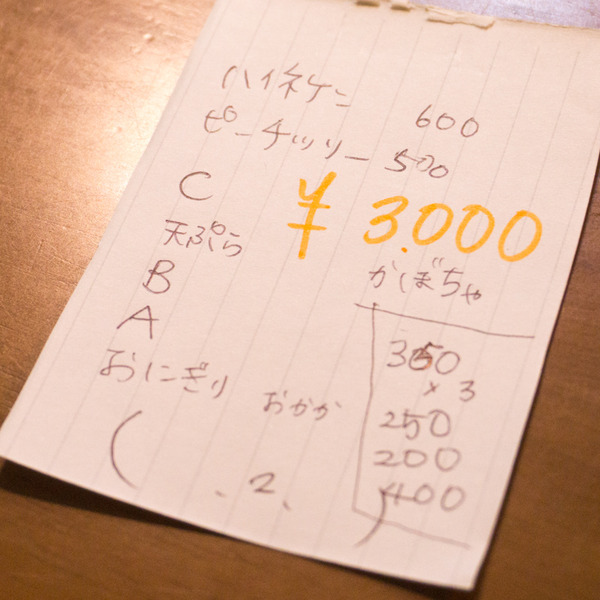 ハイネケン 600
ピーチツリー 500
C ¥3.000
天ぷら かぼちゃ
B
A 350
× 3
おにぎり おかか 250
200
( . 2 . ) 400